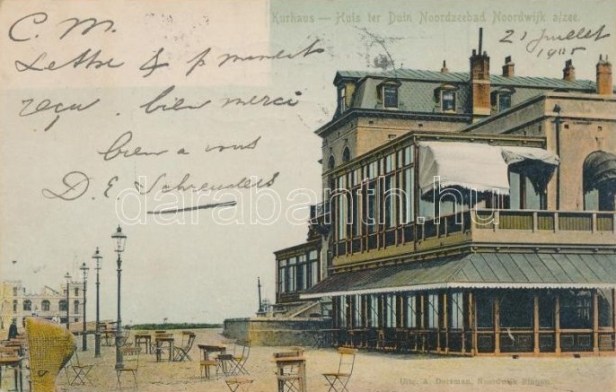 Kurhaus — Huis ter Duin Noordzeebad Noordwijk a/zee.
21 Juillet
1905
C. M.
Lettre & p mandat
reçu. bien merci
bien a vous
D. E. Schreuders
darabanth.hu
Uitg. A. Dorsman, Noordwijk Binnen